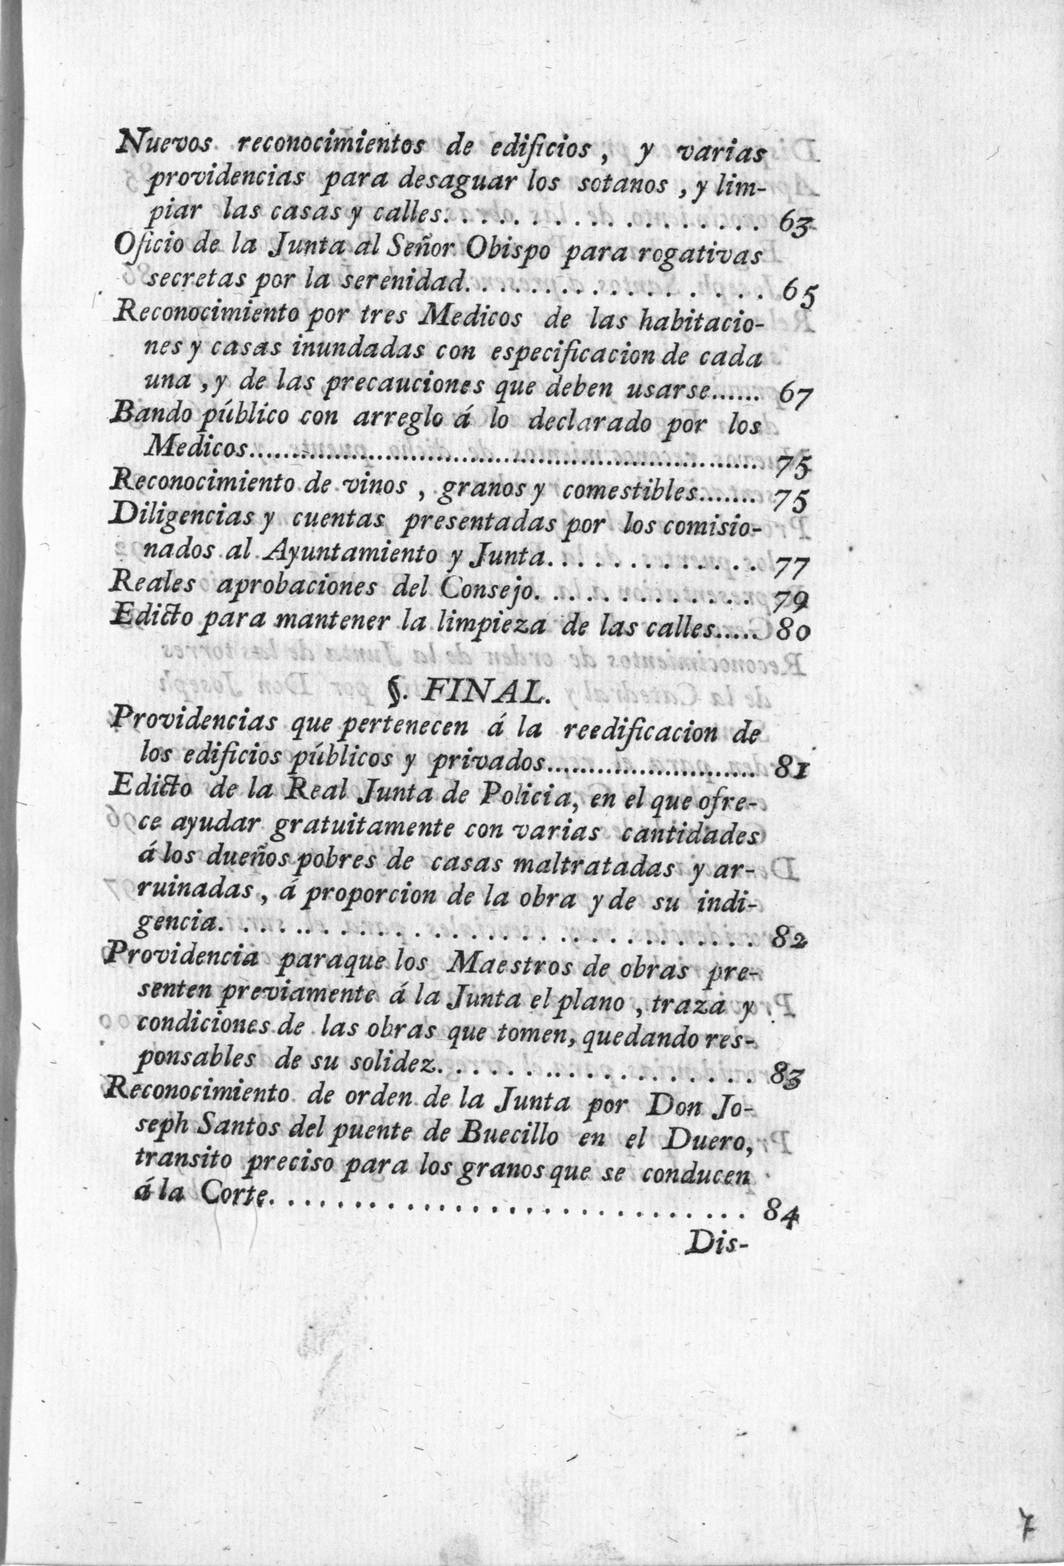 Nuevos reconocimientos de edificios, y varias
providencias para desaguar los sotanos, y lim-
piar las casas y calles.................. 63
Oficio de la Junta al Señor Obispo para rogativas
secretas por la serenidad................. 65
Reconocimiento por tres Medicos de las habitacio-
nes y casas inundadas con especificacion de cada
una, y de las precauciones que deben usarse...... 67
Bando público con arreglo á lo declarado por los
Medicos.................................................. 75
Reconocimiento de vinos, granos y comestibles....... 75
Diligencias y cuentas presentadas por los comisio-
nados al Ayuntamiento y Junta............. 77
Reales aprobaciones del Consejo............. 79
Edicto para mantener la limpieza de las calles..... 80
§. FINAL.
Providencias que pertenecen á la reedificacion de
los edificios públicos y privados........................ 81
Edicto de la Real Junta de Policia, en el que ofre-
ce ayudar gratuitamente con varias cantidades
á los dueños pobres de casas maltratadas y ar-
ruinadas, á proporcion de la obra y de su indi-
gencia............................. 82
Providencia paraque los Maestros de obras pre-
senten previamente á la Junta el plano, traza y
condiciones de las obras que tomen, quedando res-
ponsables de su solidez.................. 83
Reconocimiento de orden de la Junta por Don Jo-
seph Santos del puente de Buecillo en el Duero,
transito preciso para los granos que se conducen
á la Corte........................... 84
Dis-
7